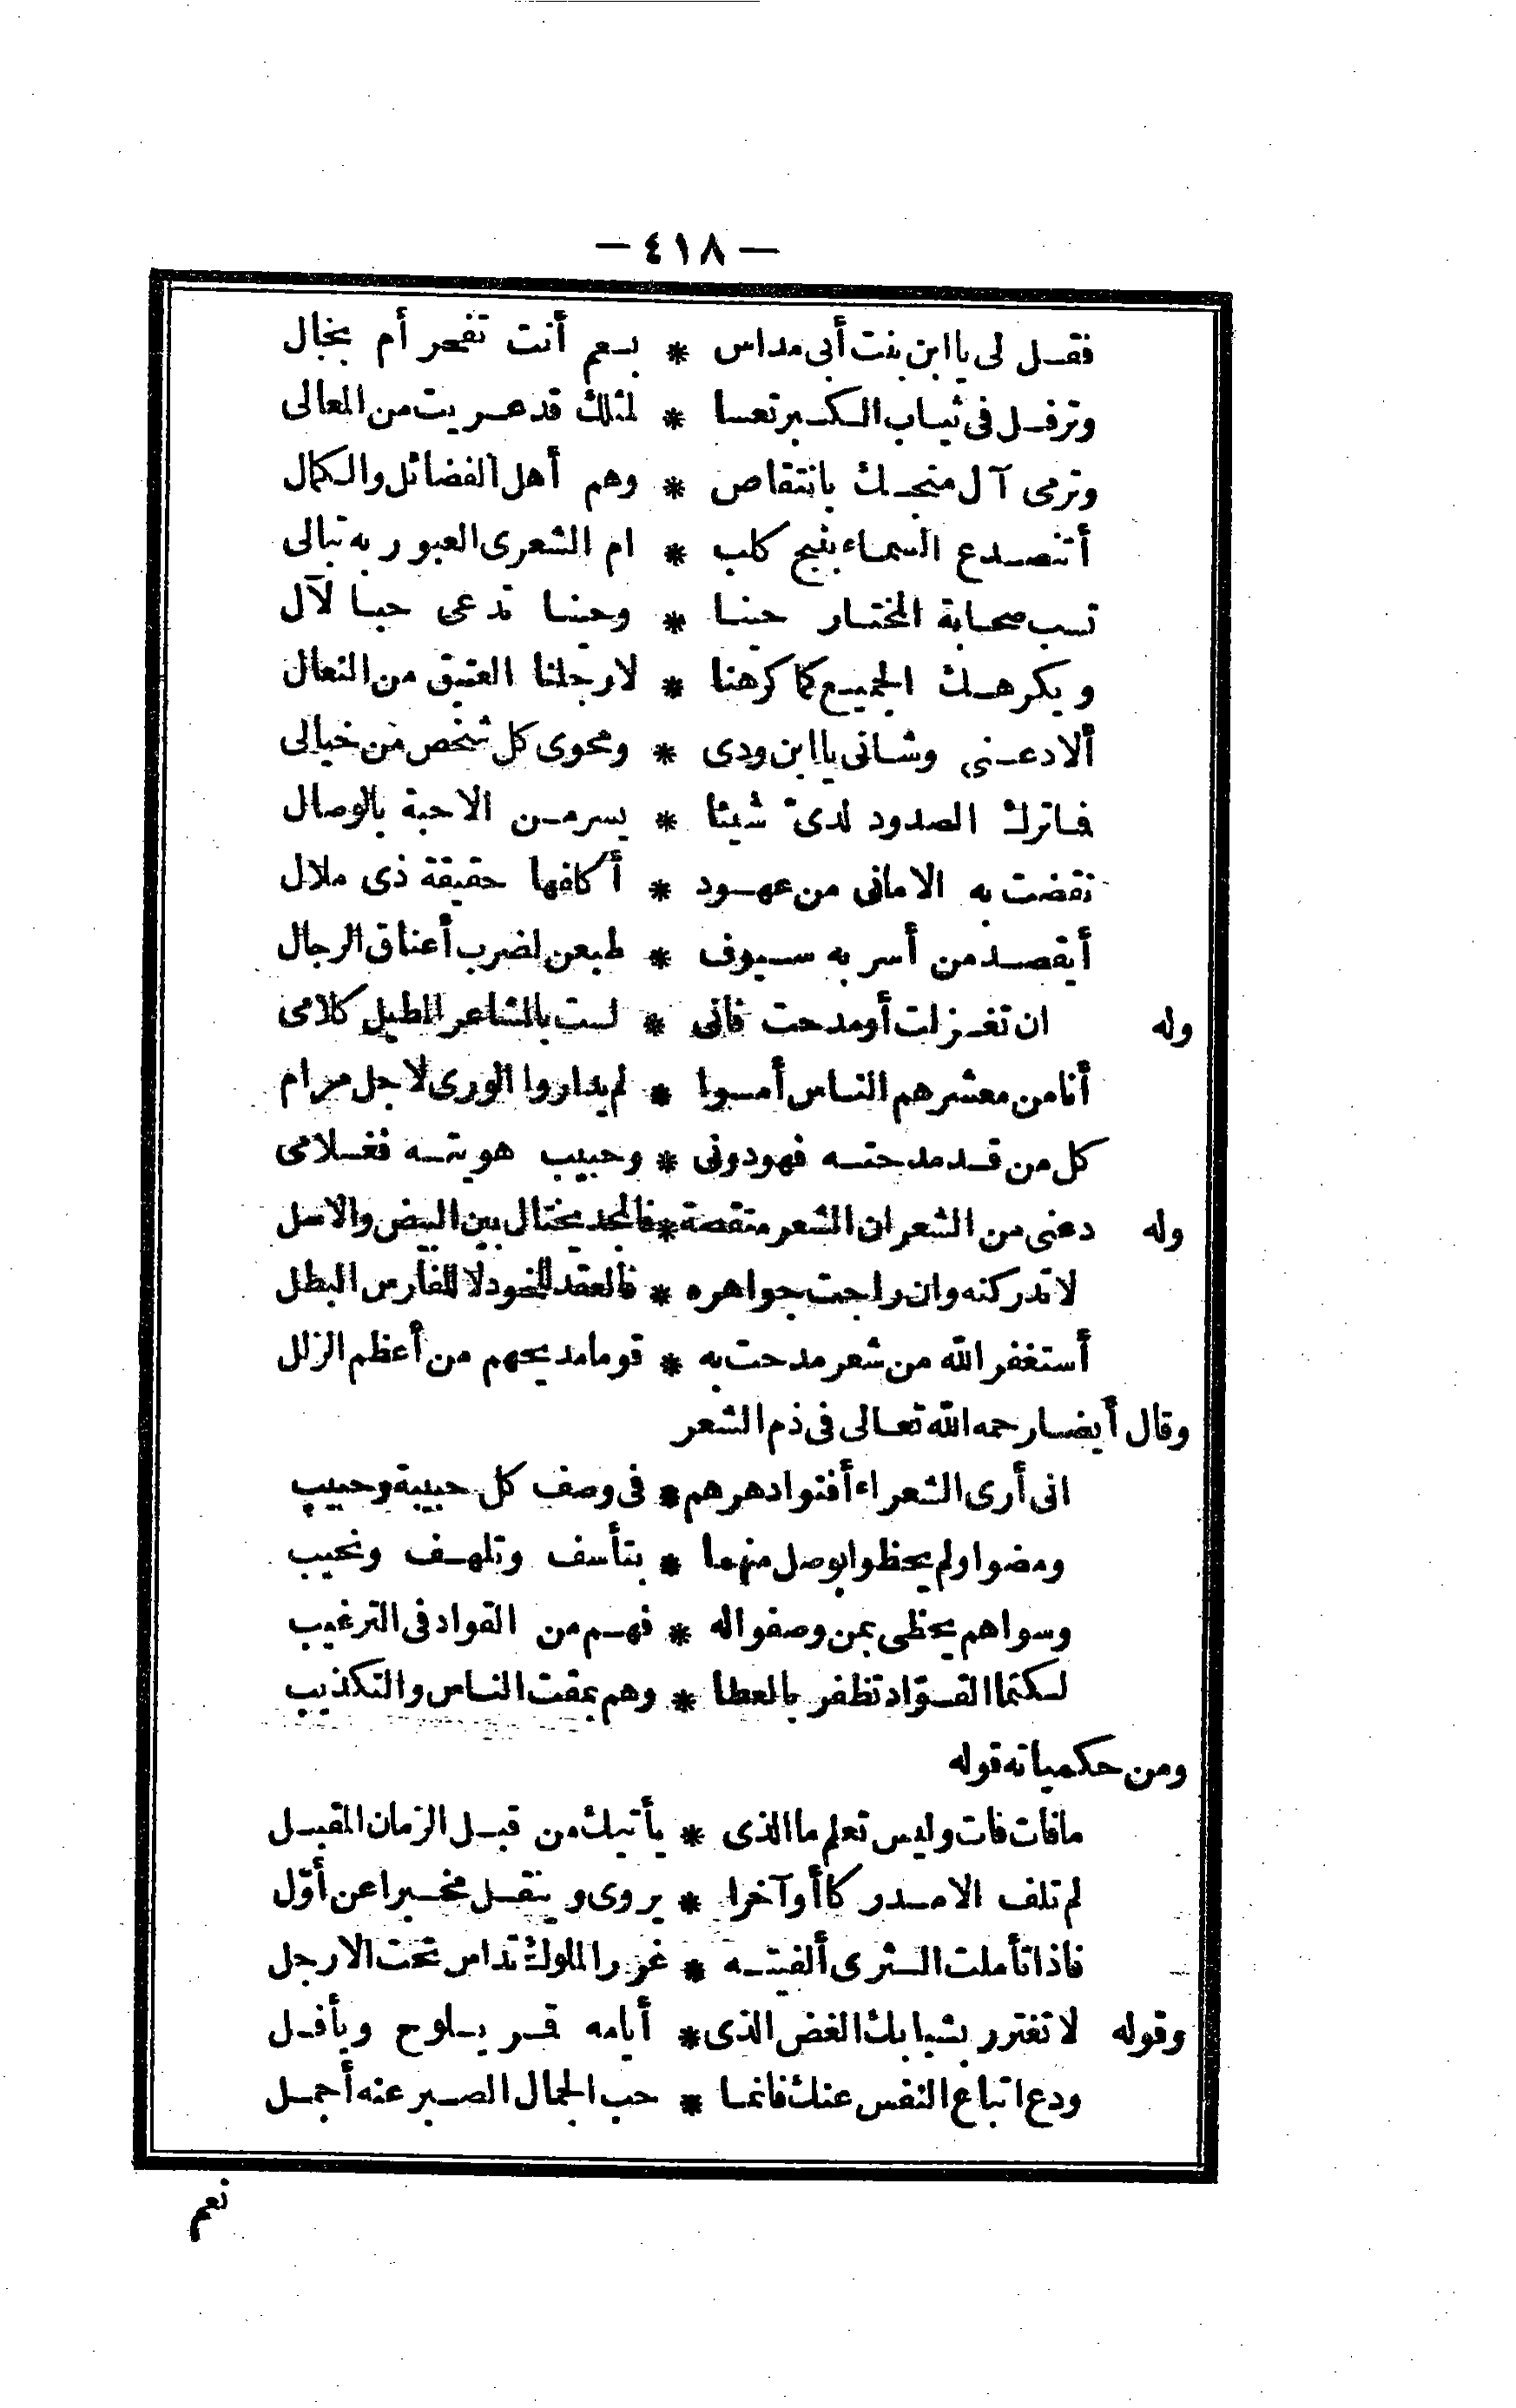 — ٤١٨ —
فقل لى يا ابن بنت أبى مداس * بعم أنت تفخر أم بخال
وترفل فى ثياب الكبر تعسا * لمثلك قد عريت من المعالى
وترمى آل منجك بانتقاص * وهم أهل الفضائل والكمال
أتنصدع السماء بنبح كلب * ام الشعرى العبور به تبالى
تسب صحابة المختار حينا * وحينا تدعى حبا لآل
ويكرهك الجميع كما كرهنا * لارجلنا العتيق من النعال
ألا دعنى وشانى يا ابن ودى * ومحوى كل شخص من خيالى
فما ترك الصدود لدىّ شيئا * يسر من الاحبة بالوصال
نقضت به الامانى من عهود * أكافها حقيقة ذى ملال
أيقصد من أسر به سيوف * طبعن لضرب أعناق الرجال
وله ان تغزلت أو مدحت فانى * لست بالشاعر المطيل كلامى
أنا من معشر هم الناس أمسوا * لم يداروا الورى لاجل مرام
كل من قد مدحته فهو دونى * وحبيب هويته فغلامى
وله دعنى من الشعر ان الشعر منقصة * فالمجد يختال بين البيض والاسل
لا تدركنه وان راجت جواهره * فالعقد للخود لا للفارس البطل
أستغفر الله من شعر مدحت به * قوما مديحهم من أعظم الزلل
وقال أيضا رحمه الله تعالى فى ذم الشعر
انى أرى الشعراء أفنوا دهرهم * فى وصف كل حبيبة وحبيب
ومضوا ولم يحظوا بوصل منهما * بتأسف وتلهف ونحيب
وسواهم يحظى بمن وصفوا له * فهم من القواد فى الترغيب
لكنما القوّاد تظفر بالعطا * وهم بمقت الناس والتكذيب
ومن حكمياته قوله
ما فات فات وليس تعلم ما الذى * يأتيك من قبل الزمان المقبل
لم تلف الا مدركا أو آخرا * يروى وينقل مخبرا عن أوّل
فاذا تأملت الثرى ألفيته * غرر الملوك تداس تحت الارجل
وقوله لا تغترر بشبابك الغض الذى * أيامه قمر يلوح ويأفل
ودع اتباع النفس عنك فانما * حب الجمال الصبر عنه أجمل
نعم